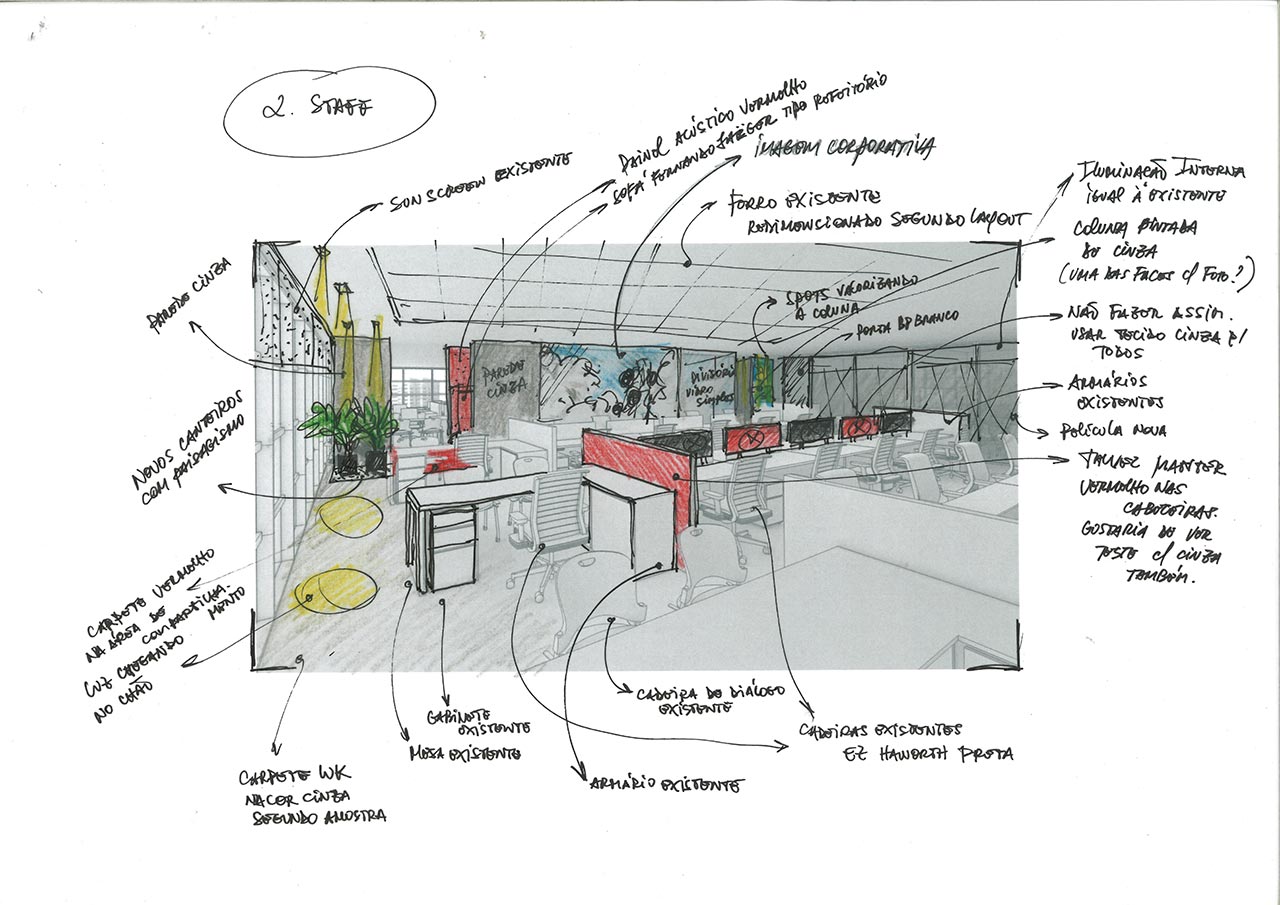 2. STAFF
SUN SCREEN EXISTENTE
PAINEL ACÚSTICO VERMELHO
SOFÁ FERNANDO JAEGER TIPO REFEITÓRIO
IMAGEM CORPORATIVA
FORRO EXISTENTE
REDIMENSIONADO SEGUNDO LAYOUT
ILUMINAÇÃO INTERNA
IGUAL À EXISTENTE
COLUNA PINTADA
DE CINZA
(UMA DAS FACES C/ FOTO?)
NÃO FAZER ASSIM.
USAR TECIDO CINZA P/
TODOS
ARMÁRIOS
EXISTENTES
PELÍCULA NOVA
TALVEZ MANTER
VERMELHO NAS
CABECEIRAS.
GOSTARIA DE VER
TESTE C/ CINZA
TAMBÉM.
PAREDE CINZA
SPOTS VALORIZANDO
A COLUNA
PORTA BRANCO
PAREDE
CINZA
DIVISÓRIA
VIDRO
SIMPLES
NOVOS CANTEIROS
COM PAISAGISMO
CARPETE VERMELHO
NA ÁREA DE
COMPARTILHA-
MENTO
LUZ CHEGANDO
NO CHÃO
CARPETE WK
NA COR CINZA
SEGUNDO AMOSTRA
GABINETE
EXISTENTE
MESA EXISTENTE
ARMÁRIO EXISTENTE
CADEIRA DE DIÁLOGO
EXISTENTE
CADEIRAS EXISTENTES
EZ HAWORTH PRETA